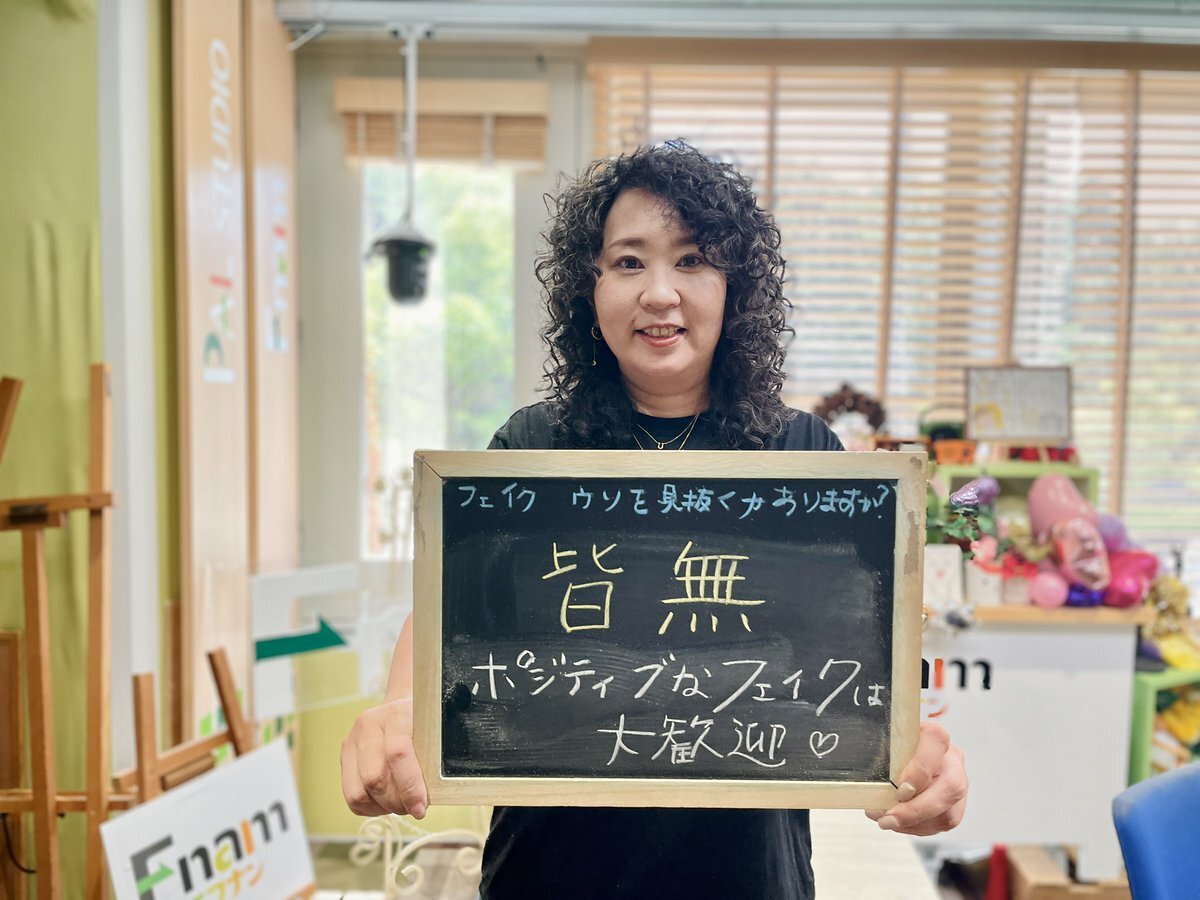 PAL STUDIO
フェイク ウソを見抜く力ありますか?
皆無
ポジティブなフェイクは
大歓迎♡
Enam
エフナン